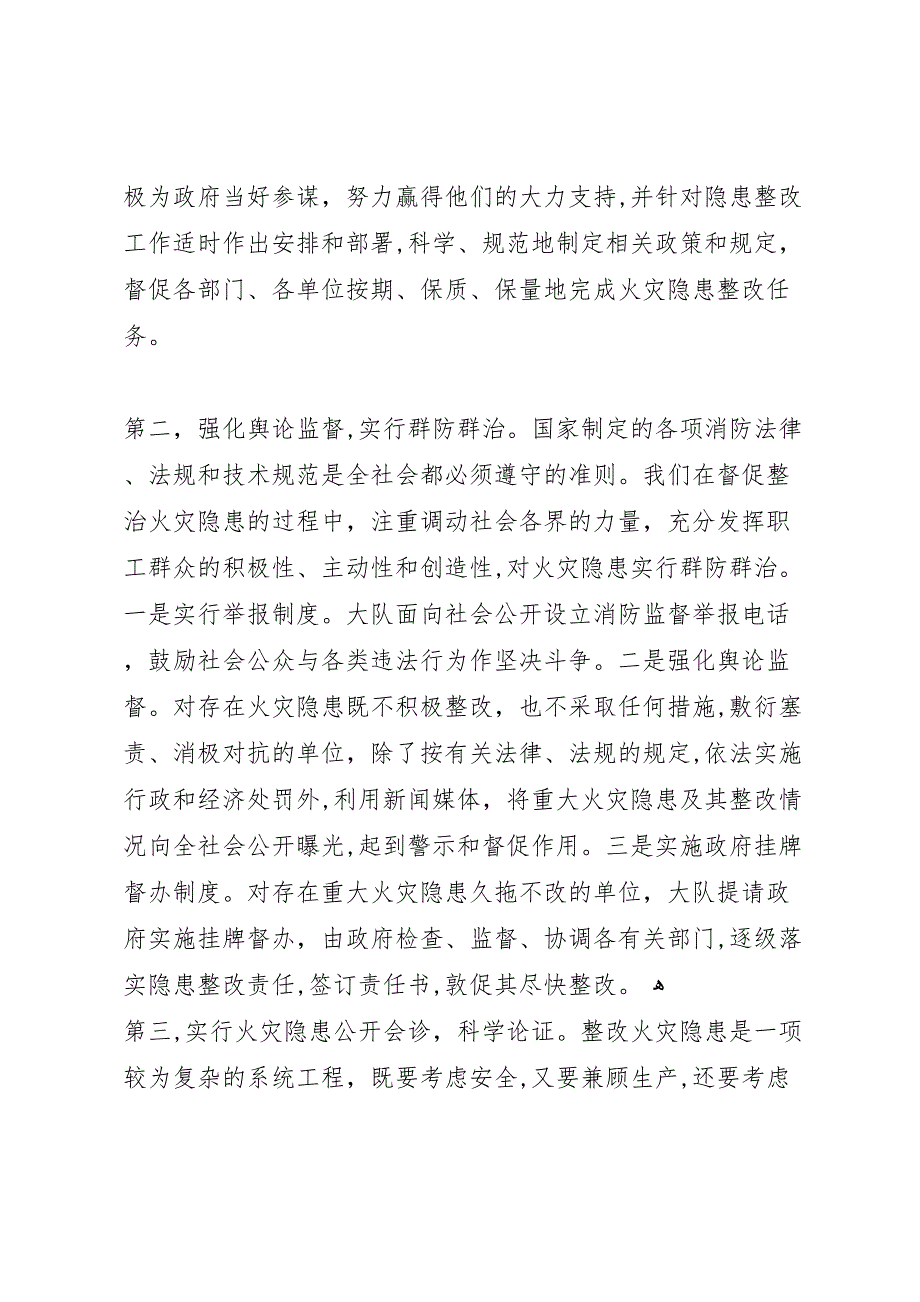 极为政府当好参谋，努力赢得他们的大力支持,并针对隐患整改
工作适时作出安排和部署,科学、规范地制定相关政策和规定，
督促各部门、各单位按期、保质、保量地完成火灾隐患整改任
务。
第二，强化舆论监督,实行群防群治。国家制定的各项消防法律
、法规和技术规范是全社会都必须遵守的准则。我们在督促整
治火灾隐患的过程中，注重调动社会各界的力量，充分发挥职
工群众的积极性、主动性和创造性,对火灾隐患实行群防群治。
一是实行举报制度。大队面向社会公开设立消防监督举报电话
，鼓励社会公众与各类违法行为作坚决斗争。二是强化舆论监
督。对存在火灾隐患既不积极整改，也不采取任何措施,敷衍塞
责、消极对抗的单位，除了按有关法律、法规的规定,依法实施
行政和经济处罚外,利用新闻媒体，将重大火灾隐患及其整改情
况向全社会公开曝光,起到警示和督促作用。三是实施政府挂牌
督办制度。对存在重大火灾隐患久拖不改的单位，大队提请政
府实施挂牌督办，由政府检查、监督、协调各有关部门,逐级落
实隐患整改责任,签订责任书,敦促其尽快整改。 ﻫ
第三,实行火灾隐患公开会诊，科学论证。整改火灾隐患是一项
较为复杂的系统工程，既要考虑安全,又要兼顾生产,还要考虑